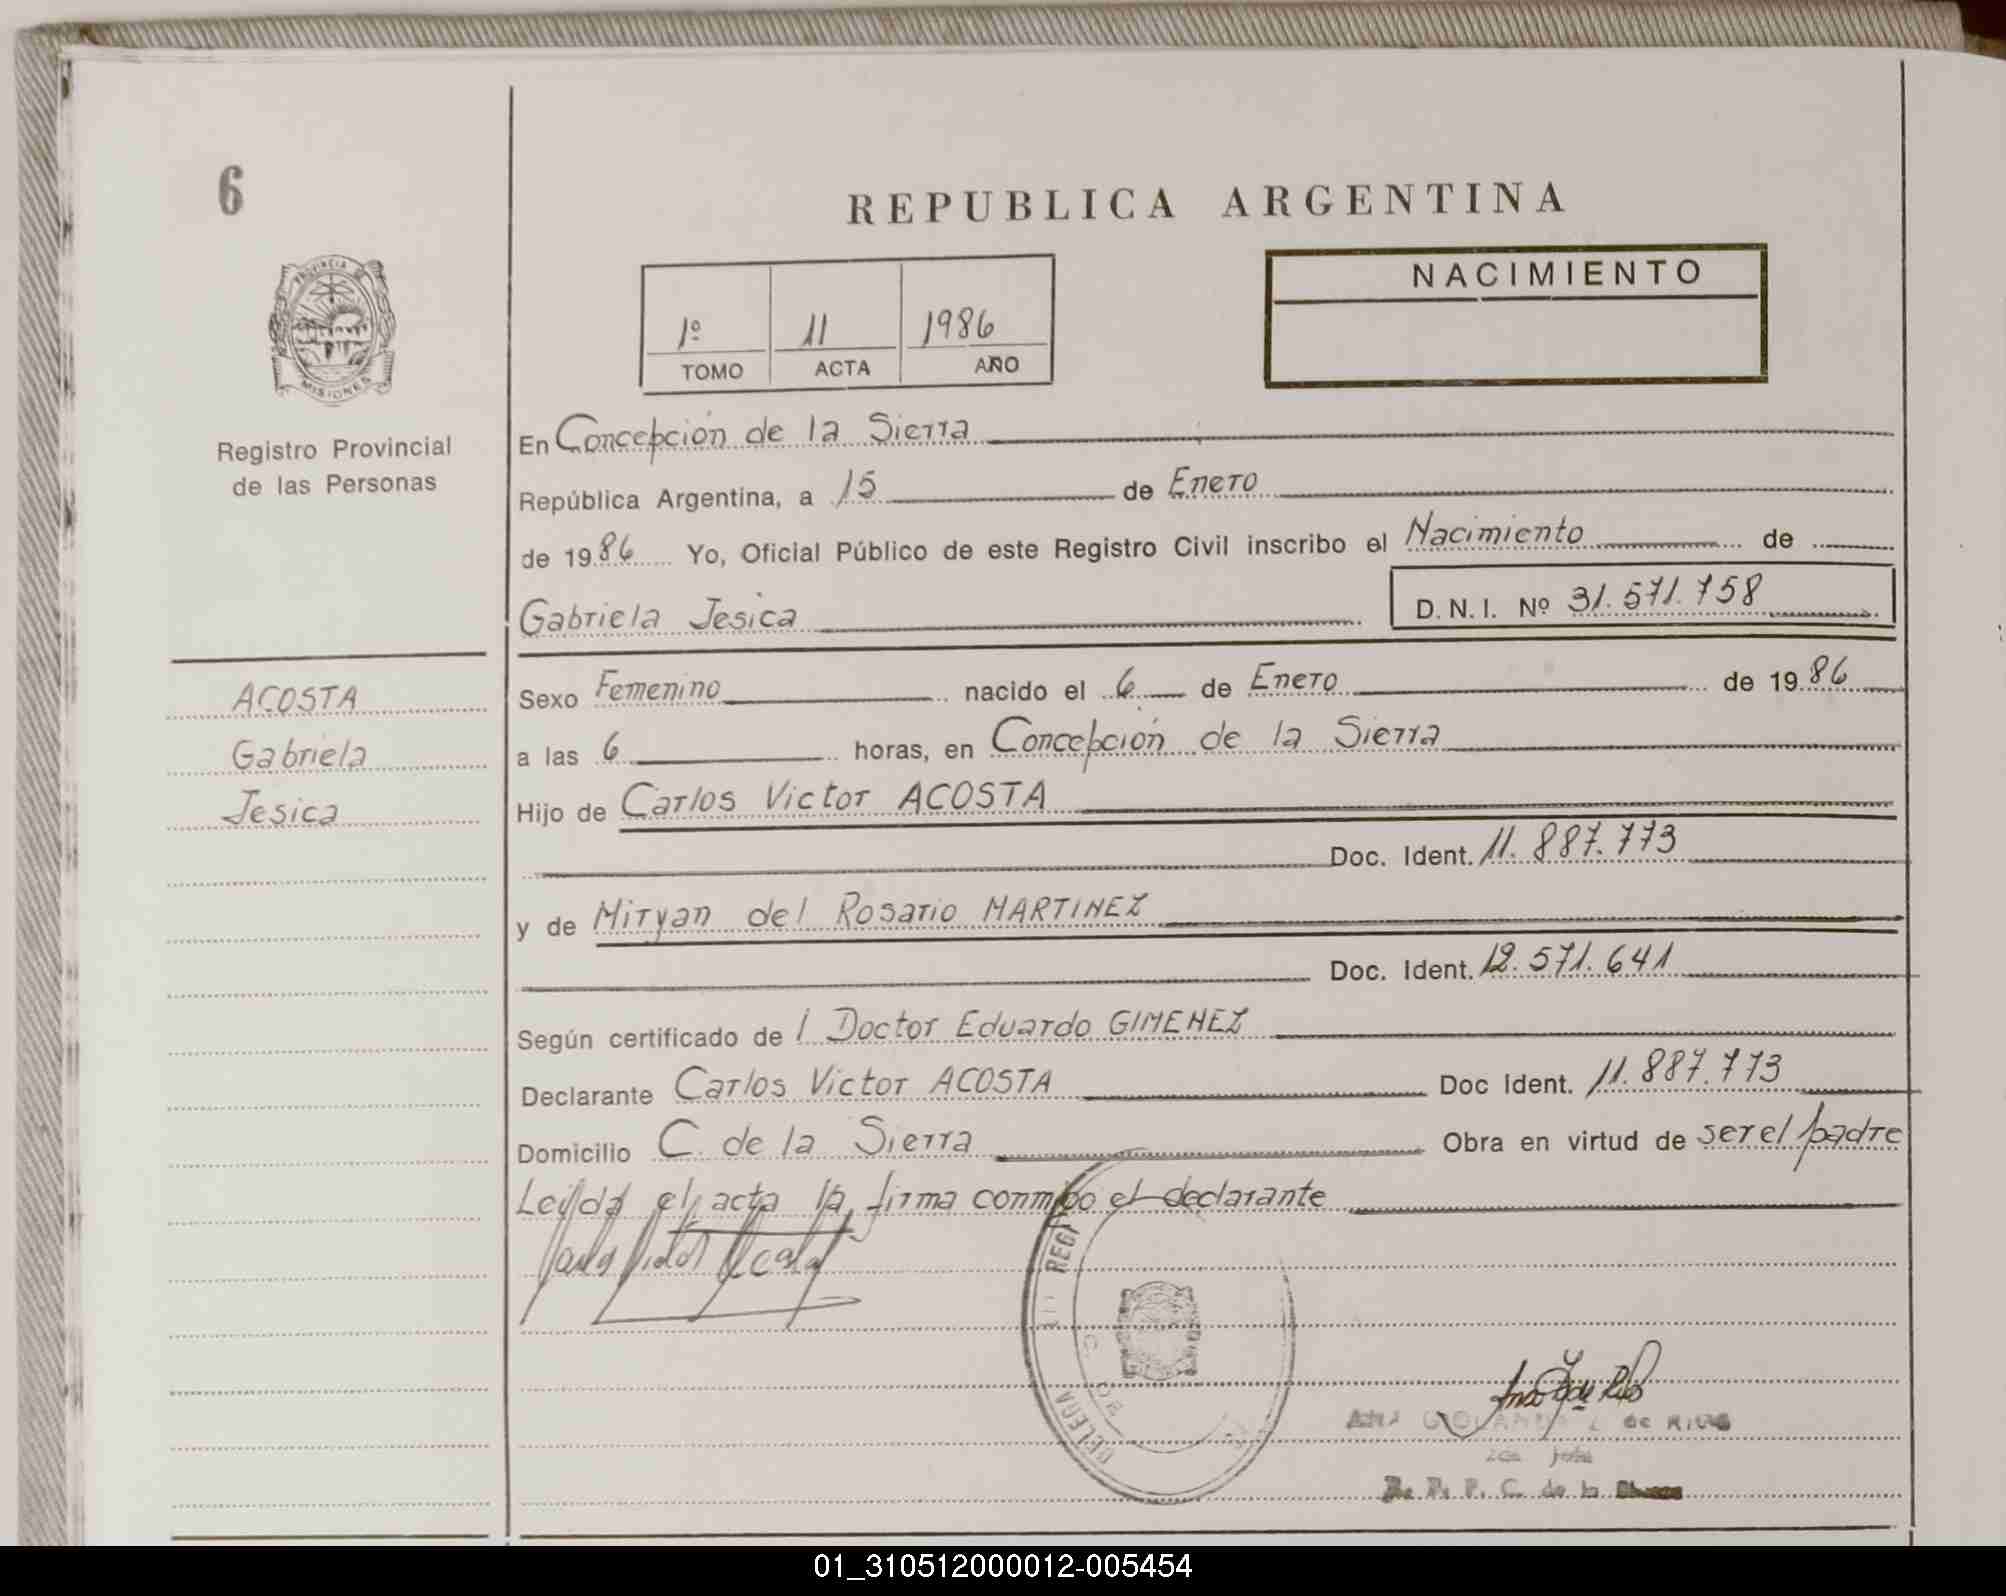 6
REPUBLICA ARGENTINA
PROVINCIA DE
MISIONES
Registro Provincial
de las Personas
1º 11 1986
TOMO ACTA AÑO
NACIMIENTO
En Concepción de la Sierra
República Argentina, a 15 de Enero
de 1986 Yo, Oficial Público de este Registro Civil inscribo el Nacimiento de
Gabriela Jesica D.N.I. Nº 31.571.758
ACOSTA
Gabriela
Jesica
Sexo Femenino nacido el 6 de Enero de 1986
a las 6 horas, en Concepción de la Sierra
Hijo de Carlos Victor ACOSTA
Doc. Ident. 11.887.773
y de Miryan del Rosario MARTINEZ
Doc. Ident. 12.571.641
Según certificado de l Doctor Eduardo GIMENEZ
Declarante Carlos Victor ACOSTA Doc Ident. 11.887.773
Domicilio C. de la Sierra Obra en virtud de ser el padre
Leida el acta la firma conmigo el declarante
REGI
DELEGA
de RIOS
P. C. de la
01_310512000012-005454